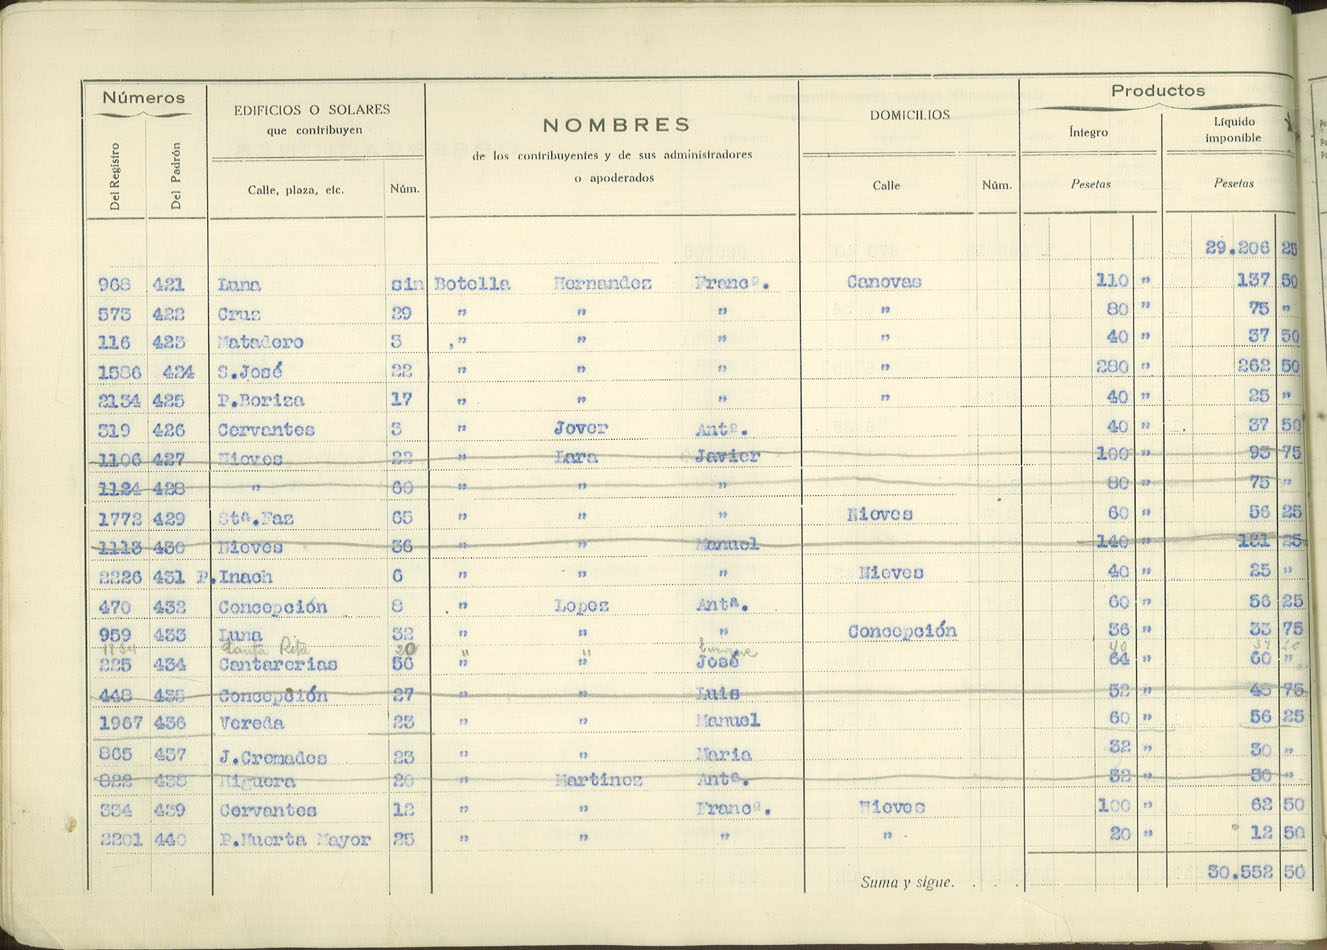 Números
EDIFICIOS O SOLARES
que contribuyen
NOMBRES
de los contribuyentes y de sus administradores
o apoderados
DOMICILIOS
Productos
Del Registro
Del Padrón
Calle, plaza, etc.
Núm.
Calle
Núm.
Íntegro
Pesetas
Líquido
imponible
Pesetas
29.206 25
968 421 Luna sin Botella Hernandez Francª. Canovas 110 " 137 50
573 422 Cruz 29 " " " " 80 " 75 "
116 423 Matadero 3 ," " " " 40 " 37 50
1586 424 S.José 22 " " " " 280 " 262 50
2134 425 P.Boriza 17 " " " " 40 " 25 "
319 426 Cervantes 3 " Jover Antª. 40 " 37 50
1106 427 Nieves 22 " Lara Javier 100 " 93 75
1124 428 " 60 " " " 80 " 75 "
1772 429 Stª.Faz 65 " " " Nieves 60 " 56 25
1113 430 Nieves 36 " " Manuel 140 " 131 25
2226 431 P.Inach 6 " " " Nieves 40 " 25 "
470 432 Concepción 8 " Lopez Antª. 60 " 56 25
959 433 Luna 32 " " " Concepción 36 " 33 75
Santa Rita 20 " " Enrique 40
225 434 Cantarerias 56 " " José 64 " 60 "
448 435 Concepción 27 " " Luis 52 " 48 75
1967 436 Vereda 23 " " Manuel 60 " 56 25
865 437 J.Cremades 23 " " Maria 32 " 30 "
822 438 Higuera 20 " Martinez Antª. 32 " 30 "
334 439 Cervantes 12 " " Francª. Nieves 100 " 62 50
2201 440 P.Huerta Mayor 25 " " " " 20 " 12 50
Suma y sigue. . . . 30.552 50